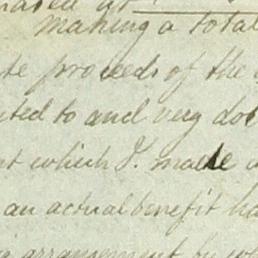 making a total
proceeds of the
to and very
which I. made
an actual benefit
arrangement by